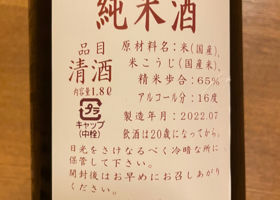 純米酒
品目
清酒
内容量1.8ℓ
プラ
キャップ
(中栓)
原材料名:米(国産)、
米こうじ(国産米)、
精米歩合:65%
アルコール分:16度
製造年月:2022.07
飲酒は20歳になってから。
日光をさけなるべく冷暗な所に
保管して下さい。
開封後はお早めにお召しあがり
ください。